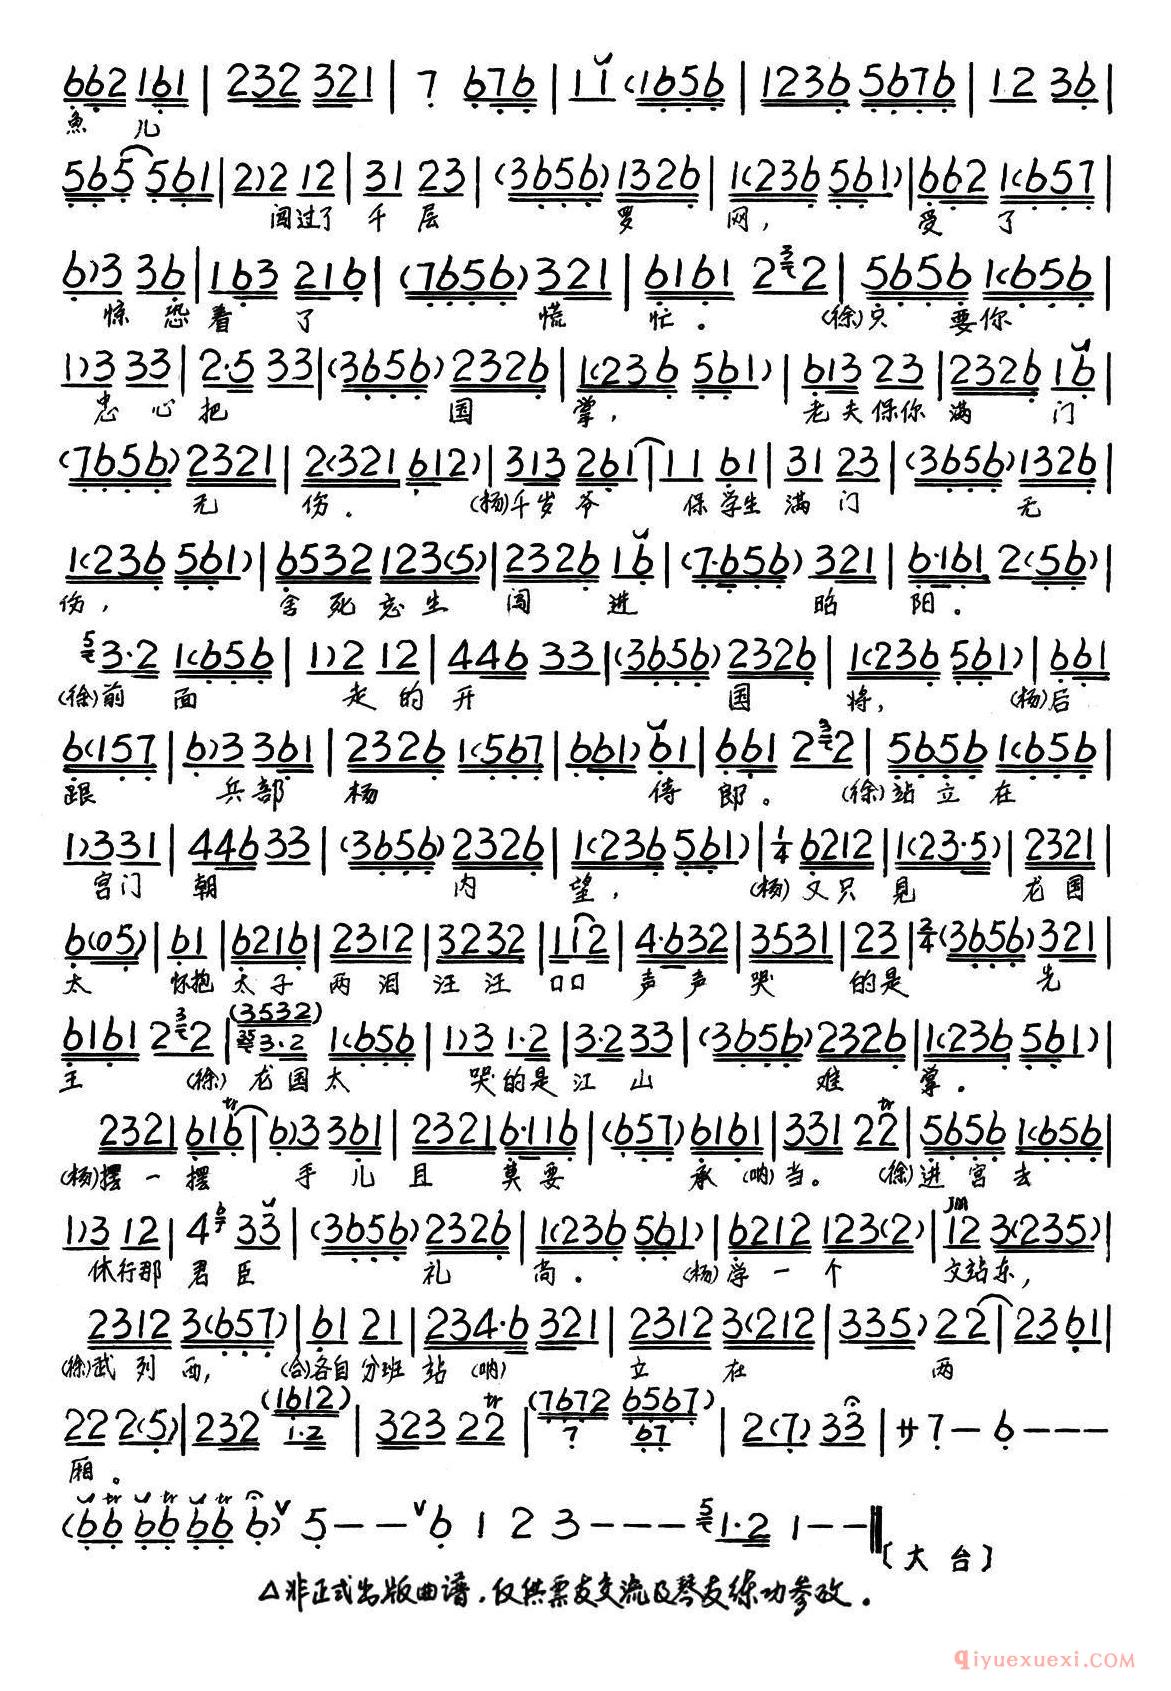 6 6 2 1 6 1 | 2 3 2 3 2 1 | 7 6 7 6 | 1 1 (1 6 5 6 | 1 2 3 6 5 6 7 6 | 1 2 3 6 |
魚 儿
5 6 5 5 6 1 | 2) 2 1 2 | 3 1 2 3 | (3 6 5 6) 1 3 2 6 | 1 (2 3 6 5 6 1) | 6 6 2 1 (6 5 7
闯过了 千 层 罗 网, 受 了
6) 3 3 6 | 1 6 3 2 1 6 | (7 6 5 6) 3 2 1 | 6 1 6 1 2 3 2 | 5 6 5 6 1 (6 5 6
惊 恐 着 了 慌 忙。 (徐)只 要你
1) 3 3 3 | 2·5 3 3 | (3 6 5 6) 2 3 2 6 | 1 (2 3 6 5 6 1) | 6 1 3 2 3 | 2 3 2 6 1 6 |
忠 心 把 国 掌, 老 夫 保你 满 门
(7 6 5 6) 2 3 2 1 | 2 (3 2 1 6 1 2) | 3 1 3 2 6 1 | 1 1 6 1 | 3 1 2 3 | (3 6 5 6) 1 3 2 6 |
无 伤。 (杨)千岁 爷 保 学生 满 门 无
1 (2 3 6 5 6 1) | 6 5 3 2 1 2 3 (5) | 2 3 2 6 1 6 | (7·6 5 6) 3 2 1 | 6·1 6 1 2 (5 6)
伤, 舍 死 忘 生 闯 进 昭 阳。
5 3·2 1 (6 5 6 | 1) 2 1 2 | 4 4 6 3 3 | (3 6 5 6) 2 3 2 6 | 1 (2 3 6 5 6 1) | 6 6 1
(徐)前 面 走 的 开 国 将, (杨)后
6 (1 5 7 | 6) 3 3 6 1 | 2 3 2 6 1 (5 6 7 | 6 6 1) 6 1 | 6 6 1 2 3 2 | 5 6 5 6 1 (6 5 6
跟 兵部 杨 侍 郎。 (徐)站 立 在
1) 3 3 1 | 4 4 6 3 3 | (3 6 5 6) 2 3 2 6 | 1 (2 3 6 5 6 1) | 1/4 6 2 1 2 | 1 (2 3·5) | 2 3 2 1 |
宫门 朝 内 望, (杨) 又只 見 龙国
6 (0 5) | 6 1 | 6 2 1 6 | 2 3 1 2 | 3 2 3 2 | 1 1 2 | 4·6 3 2 | 3 5 3 1 | 2 3 | 2/4 (3 6 5 6) 3 2 1 |
太 怀抱 太 子 两 泪 汪 汪 口口 声 声 哭 的是 先
(3 5 3 2)
6 1 6 1 2 3 2 | 3·2 1 (6 5 6 | 1) 3 1·2 | 3·2 3 3 | (3 6 5 6) 2 3 2 6 | 1 (2 3 6 5 6 1) |
王 (徐) 龙国太 哭的是江 山 难 掌。
2 3 2 1 6 1 6 tr | 6) 3 3 6 1 | 2 3 2 1 6·1 1 6 | (6 5 7) 6 1 6 1 | 3 3 1 2 2 tr | 5 6 5 6 1 (6 5 6
(杨)摆 一 摆 手 儿 且 莫 要 承 (呐)当。 (徐)进 宫 去
1) 3 1 2 | 4 6 3 3 | (3 6 5 6) 2 3 2 6 | 1 (2 3 6 5 6 1) | 6 2 1 2 1 2 3 (2) | 1 2 3 (2 3 5) |
休行那 君 臣 礼 尚。 (杨)学 一 个 文站东,
2 3 1 2 3 (6 5 7) | 6 1 2 1 | 2 3 4·6 3 2 1 | 2 3 1 2 3 (2 1 2 | 3 3 5) 2 2 | 2 3 6 1 |
(徐)武 列 西, (合)各自 分班 站 (呐) 立 在 两
(1 6 1 2) (7 6 7 2 6 5 6 7)
2 2 2 (5) | 2 3 2 1·2 | 3 2 3 2 2 tr | 7 6 7 | 2 (7) 3 3 | サ 7 — 6 — — —
厢。
(6 6 6 6 6 6 6) ∨ 5 — — ∨ 6 1 2 3 — — — 5 1·2 1 — — ‖
〔大 台〕
△非正式出版曲谱,仅供票友交流及琴友练功参改。
qiyuexuexi.COM